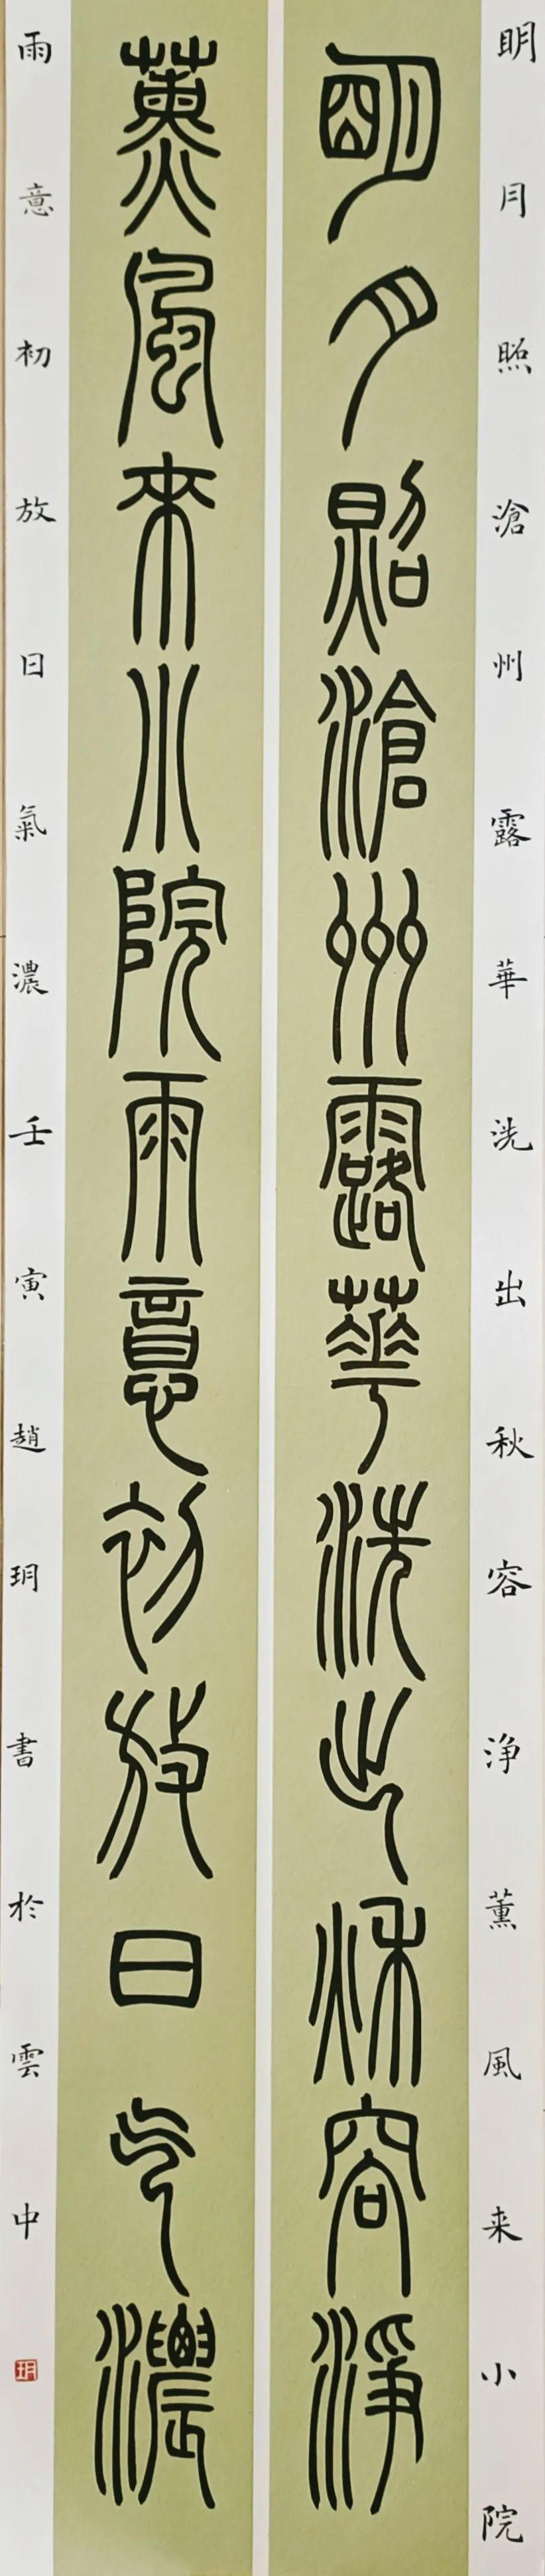 明月照滄州露華洗出秋容净薰風来小院
明月照滄州露華洗出秋容淨
薰風來小院雨意初放日气濃
雨意初放日氣濃壬寅趙玥書於雲中
玥